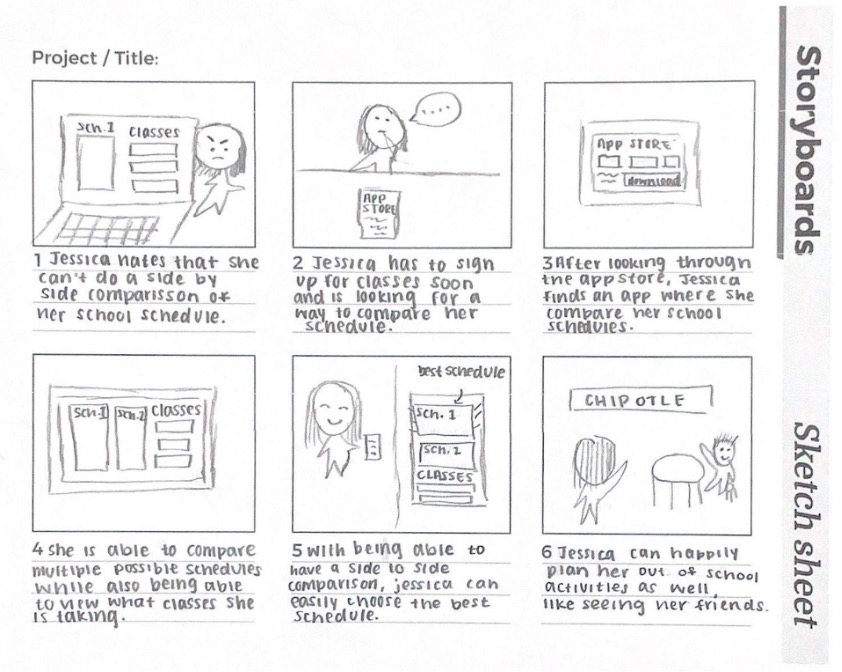 Project / Title:
Sch.1
Classes
1 Jessica hates that she
can't do a side by
side comparisson of
her school schedule.
....
APP
STORE
2 Jessica has to sign
up for classes soon
and is looking for a
way to compare her
schedule.
APP STORE
download
3 After looking through
the app store, Jessica
finds an app where she
compare her school
schedules.
Sch.1
Sch.2
Classes
4 She is able to compare
multiple possible schedules
while also being able
to view what classes she
is taking.
best schedule
Sch. 1
Sch. 2
CLASSES
5 With being able to
have a side to side
comparison, jessica can
easily choose the best
schedule.
CHIPOTLE
6 Jessica can happily
plan her out of school
activities as well,
like seeing her friends.
Storyboards
Sketch sheet